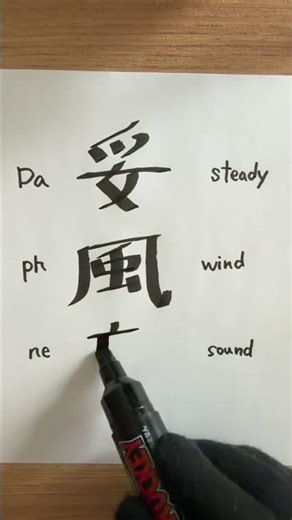 Da 妥 steady
ph 風 wind
ne sound